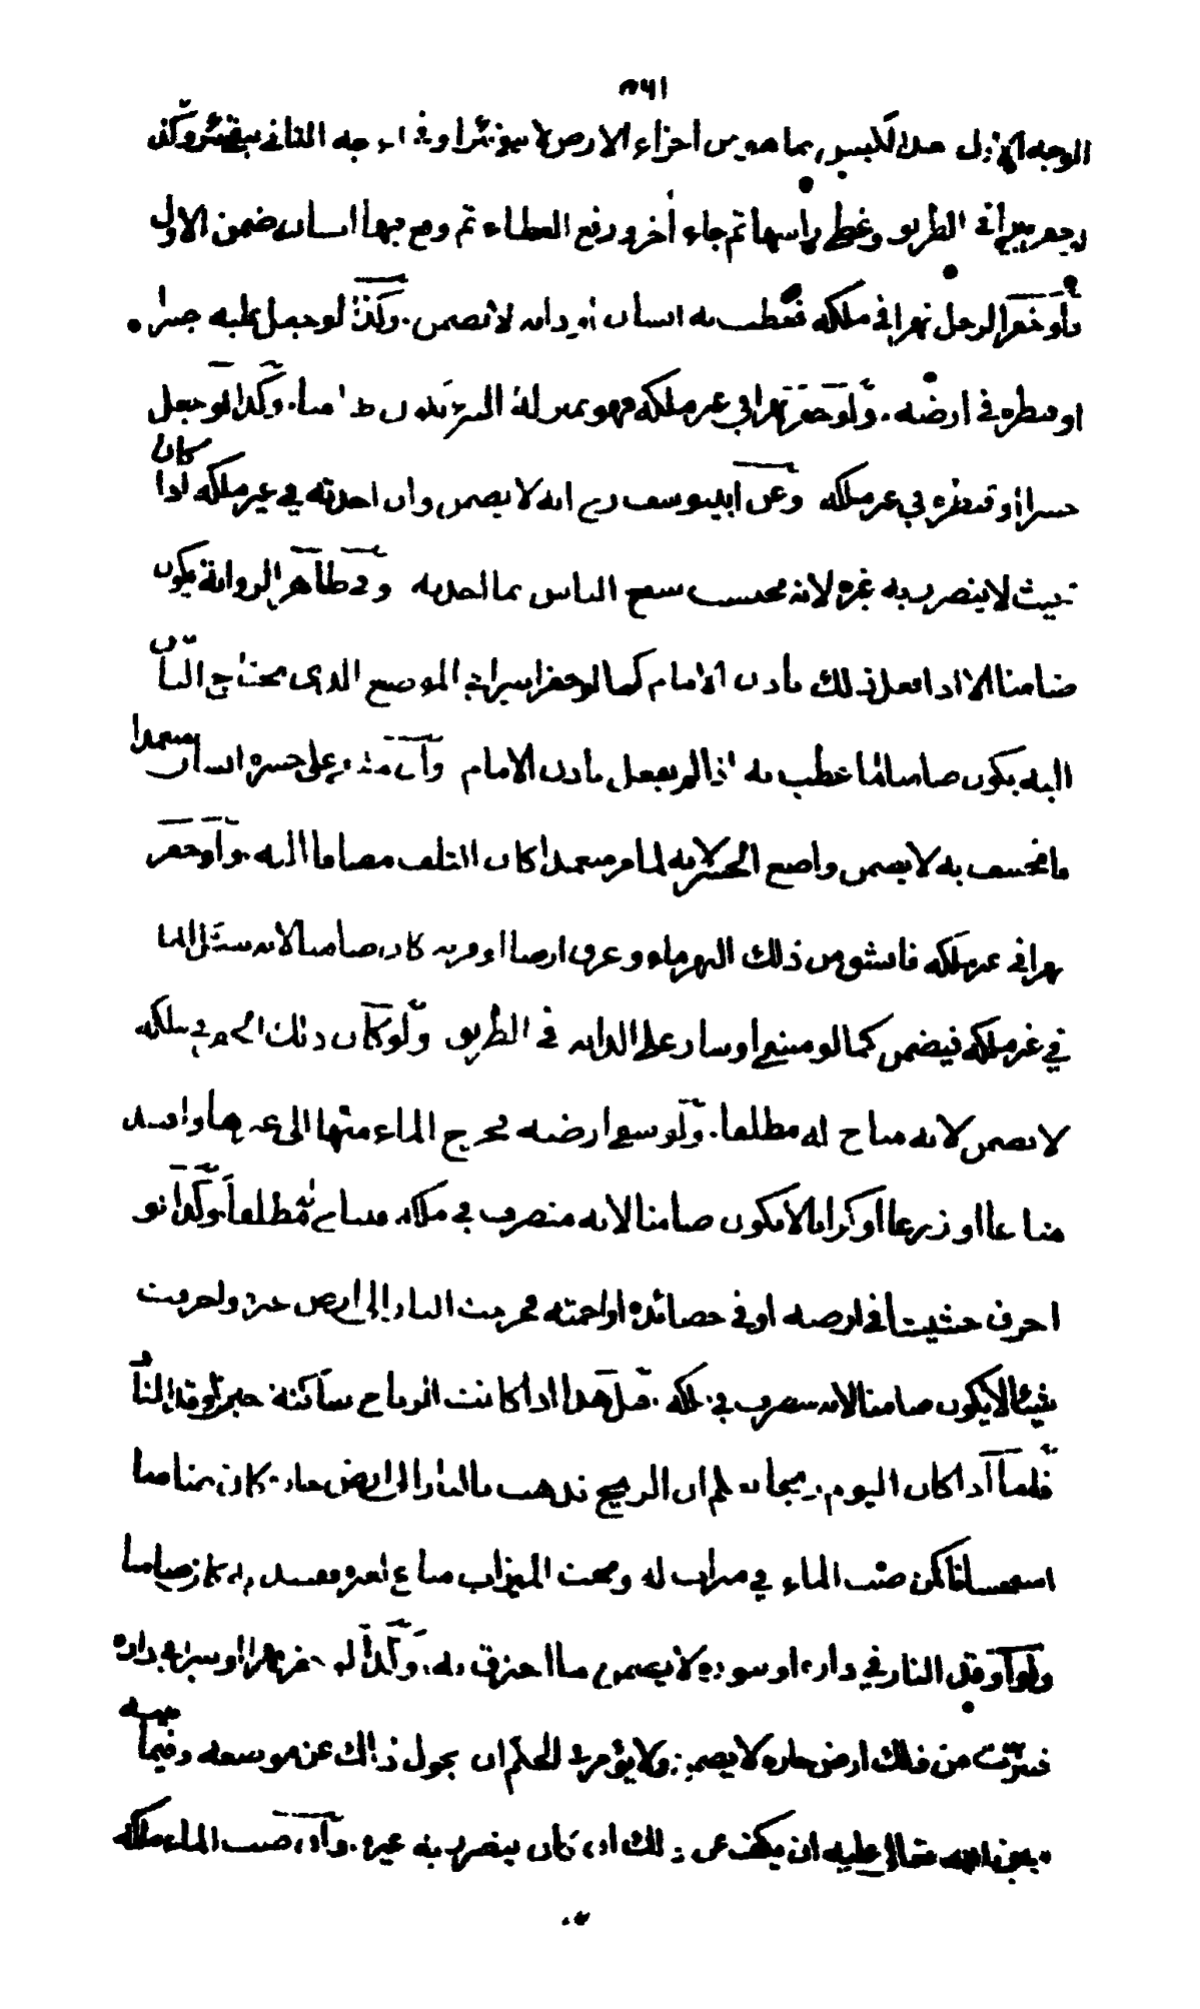 الوجه الاول هذا الكبس بما هو من اجزاء الارض لا يبقى بئرا وفى الوجه الثانى يبقى بئر وكذا
لو حفر بيرا فى الطريق وغطى راسها ثم جاء اخر ورفع الغطاء ثم وقع فيها انسان ضمن الاول
ولو حفر الرجل نهرا فى ملكه فعطب به انسان او دابه لا يضمن وكذا لو جعل عليه جسرا
او قنطره فى ارضه ولو حفر نهرا فى غير ملكه فهو بمنزلة البئر يكون ضامنا وكذا لو جعل
جسرا او قنطره فى غير ملكه وعن ابى يوسف رح انه لا يضمن وان احدثه فى غير ملكه اذا كان
بحيث لا يتضرر به غيره لانه محتسب ينفع الناس بما احدثه وفى ظاهر الرواية يكون
ضامنا الا اذا فعل ذلك باذن الامام كما لو حفر بيرا فى الموضع الذى يحتاج الناس
اليه يكون ضامنا لما عطب به اذا لم يفعل باذن الامام وان مشى على جسره انسان متعمدا
فانخسف به لا يضمن واضع الجسر لانه لما مر متعمدا كان التلف مضافا اليه ولو حفر
نهرا فى غير ملكه فانشق من ذلك النهر ماء وغرق ارضا او قريه كان ضامنا لانه سيل الماء
فى غير ملكه فيضمن كما لو مشى او سار على الدابه فى الطريق ولو كان ذلك النهر فى ملكه
لا يضمن لانه مباح له مطلقا ولو سقى ارضه فخرج الماء منها الى غيرها وافسد
متاعا او زرعا او كرابا لا يكون ضامنا لانه متصرف فى ملكه فيباح له مطلقا وكذا لو
احرق حشيشا فى ارضه او فى حصائده او اجمته فخرجت النار الى ارض غيره واحرقت
شيئا لا يكون ضامنا لانه متصرف فى ملكه قيل هذا اذا كانت الرياح ساكنة حين اوقد النار
فاما اذا كان اليوم ريحا يعلم ان الريح تذهب بالنار الى ارض جاره كان ضامنا
استحسانا كمن صب الماء فى ميزاب له وتحت الميزاب متاع لغيره ففسد به كان ضامنا
ولو اوقد النار فى داره او تنوره لا يضمن ما احترق به وكذا لو حفر نهرا او بئرا فى داره
فنزت من ذلك ارض جاره لا يضمن ولا يؤمر فى الحكم ان يحول ذلك عن موضعه وفيما بينه
وبين الله تعالى عليه ان يكف عن ذلك اذا كان يتضرر به غيره وان صب الماء ملكه